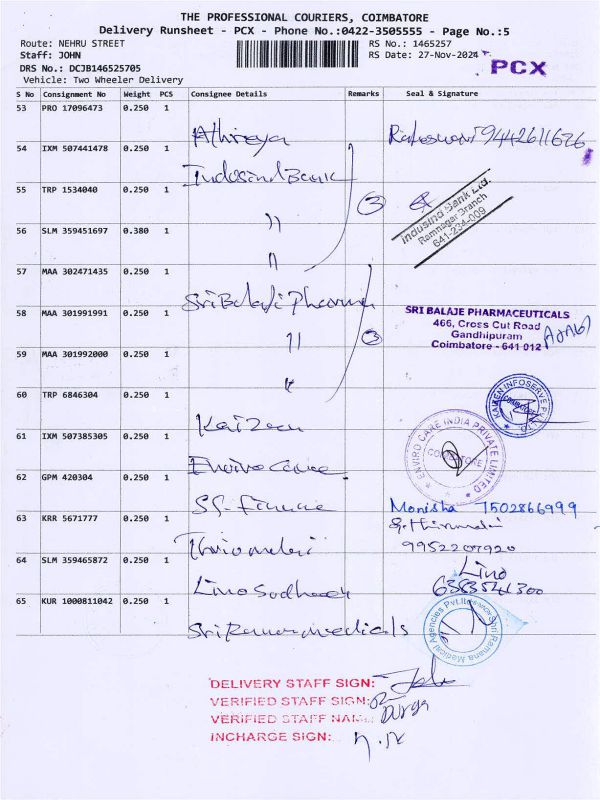 THE PROFESSIONAL COURIERS, COIMBATORE
Delivery Runsheet - PCX - Phone No.:0422-3505555 - Page No.:5
Route: NEHRU STREET
RS No.: 1465257
Staff: JOHN
RS Date: 27-Nov-2024
DRS No.: DCJB146525705
PCX
Vehicle: Two Wheeler Delivery
S No Consignment No Weight PCS Consignee Details Remarks Seal & Signature
53 PRO 17096473 0.250 1
Athreya 9442611626
54 IXM 507441478 0.250 1
IndusindBank
55 TRP 1534040 0.250 1
〃 3
Indusind Bank Ltd.
Ramnagar Branch
641-234-009
56 SLM 359451697 0.380 1
〃
57 MAA 302471435 0.250 1
SriBalaji Pharma
58 MAA 301991991 0.250 1
〃 3
SRI BALAJE PHARMACEUTICALS
466, Cross Cut Road
Gandhipuram
Coimbatore - 641 012
59 MAA 301992000 0.250 1
〃
60 TRP 6846304 0.250 1
Kaizen
KAIZEN INFOSERVE PVT LTD
COIMBATORE
61 IXM 507385305 0.250 1
Enviro care
ENVIRO CARE INDIA PRIVATE LIMITED
COIMBATORE
62 GPM 420304 0.250 1
Finance Monisha 7502866999
63 KRR 5671777 0.250 1
9952207920
64 SLM 359465872 0.250 1
Lino Sudheer Lino
6383541300
65 KUR 1000811042 0.250 1
Sri Ramana medicals
Shri Ramana Medical Agencies Pvt.Ltd
DELIVERY STAFF SIGN:
VERIFIED STAFF SIGN:
VERIFIED STAFF NAME: Durga
INCHARGE SIGN: